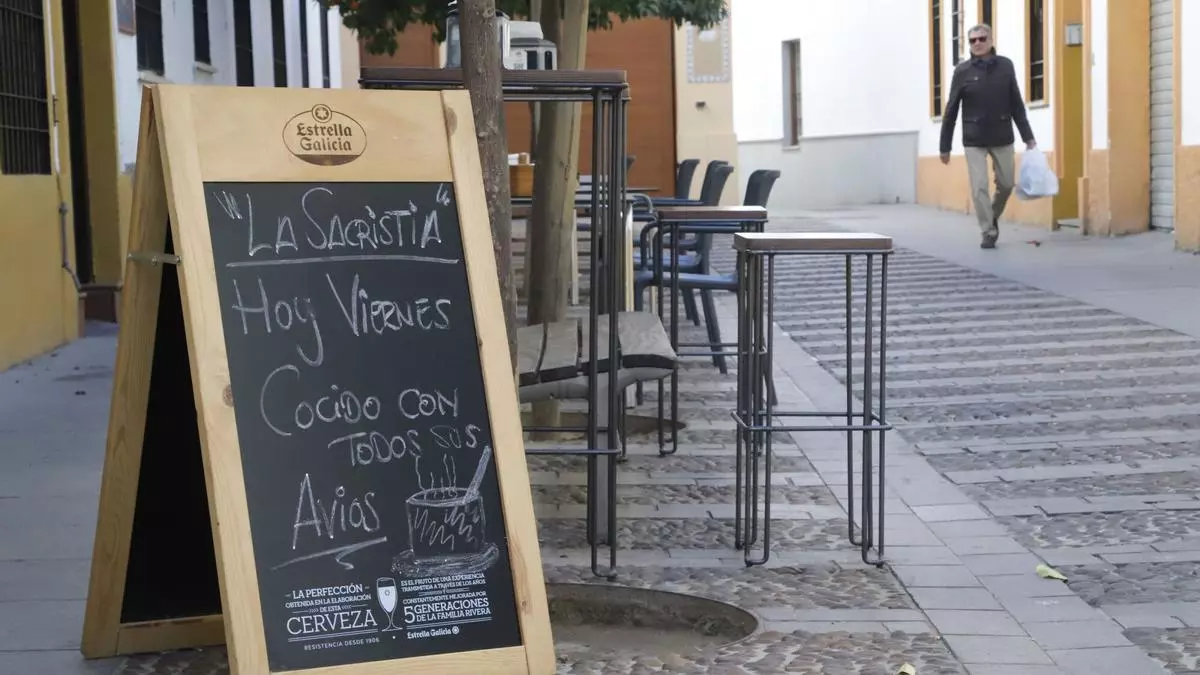 Estrella
Galicia
"LA SACRISTIA"
Hoy VIERNES
COCIDO CON
TODOS SUS
AVIOS
LA PERFECCIÓN
OBTENIDA EN LA ELABORACIÓN
DE ESTA
CERVEZA
RESISTENCIA DESDE 1906
ES EL FRUTO DE UNA EXPERIENCIA
TRANSMITIDA A TRAVÉS DE LOS AÑOS
Y
CONSTANTEMENTE MEJORADA POR
5 GENERACIONES
DE LA FAMILIA RIVERA
Estrella Galicia